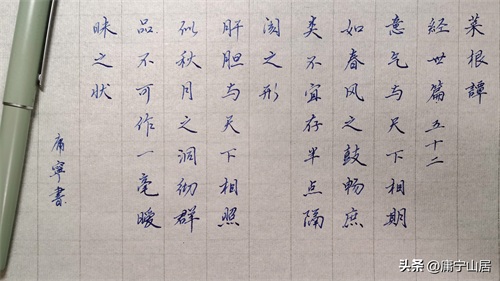 菜根譚
经世篇五十二
意气与天下相期
如春风之鼓畅庶
类不宜存半点隔
阂之形
肝胆与天下相照
似秋月之洞彻群
品不可作一毫暧
昧之状
庸宁書
头条 @庸宁山居